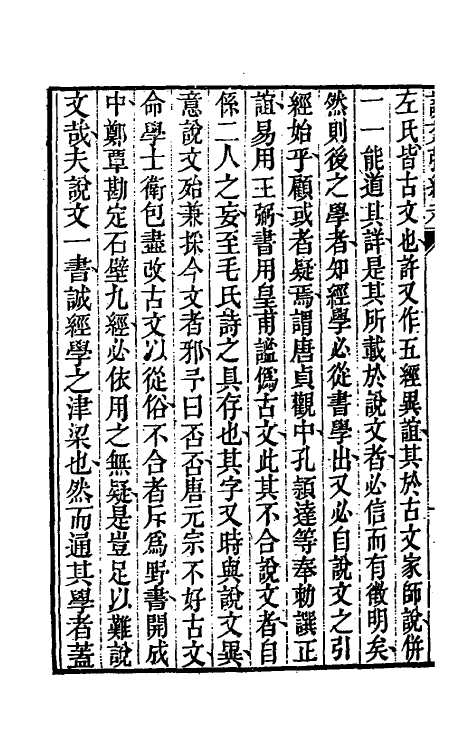 左氏皆古文也許又作五經異誼其於古文家師說併
一一能道其詳是其所載於說文者必信而有徵明矣
然則後之學者知經學必從書學出又必自說文之引
經始乎顧或者疑焉謂唐貞觀中孔頴達等奉勅譔正
誼易用王弼書用皇甫謐僞古文此其不合說文者自
係二人之妄至毛氏詩之具存也其字又時與說文異
意說文殆兼採今文者邪予曰否否唐元宗不好古文
命學士衛包盡攺古文以從俗不合者斥爲野書開成
中鄭覃勘定石壁九經必依用之無疑是豈足以難說
文哉夫說文一書誠經學之津梁也然而通其學者蓋